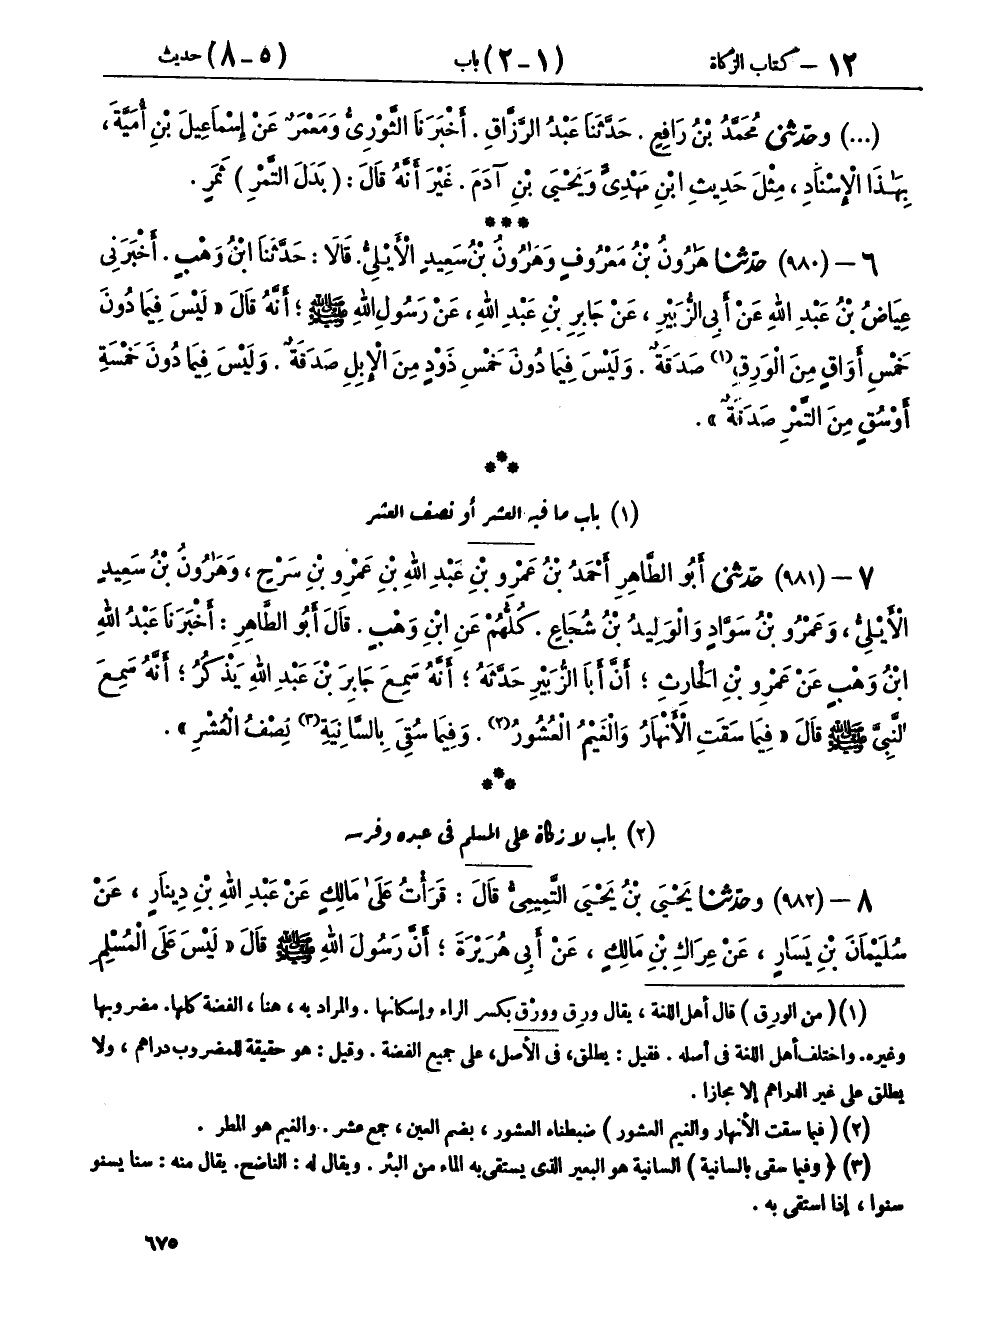 ١٢ – كتاب الزكاة (١ – ٢) باب (٥ – ٨) حديث
(...) وحَدَّثَنِى مُحَمَّدُ بْنُ رَافِعٍ . حَدَّثَنَا عَبْدُ الرَّزَّاقِ . أَخْبَرَنَا الثَّوْرِىُّ وَمَعْمَرٌ عَنْ إِسْمَاعِيلَ بْنِ أُمَيَّةَ ،
بِهَٰذَا الْإِسْنَادِ ، مِثْلَ حَدِيثِ ابْنِ مَهْدِىٍّ وَيَحْيَىَ بْنِ آدَمَ . غَيْرَ أَنَّهُ قَالَ : ( بَدَلَ التَّمْرِ ) ثَمَرٍ .
***
٦ – (٩٨٠) حَدَّثَنَا هَٰرُونُ بْنُ مَعْرُوفٍ وَهَٰرُونُ بْنُ سَعِيدٍ الْأَيْلِىُّ. قَالَا : حَدَّثَنَا ابْنُ وَهْبٍ . أَخْبَرَنِى
عِيَاضُ بْنُ عَبْدِ اللهِ عَنْ أَبِى الزُّبَيْرِ ، عَنْ جَابِرِ بْنِ عَبْدِ اللهِ، عَنْ رَسُولِ اللهِ ﷺ ؛ أَنَّهُ قَالَ « لَيْسَ فِيمَا دُونَ
خَمْسِ أَوَاقٍ مِنَ الْوَرِقِ(١) صَدَقَةٌ . وَلَيْسَ فِيمَا دُونَ خَمْسِ ذَوْدٍ مِنَ الْإِبِلِ صَدَقَةٌ . وَلَيْسَ فِيمَا دُونَ خَمْسَةِ
أَوْسُقٍ مِنَ التَّمْرِ صَدَقَةٌ » .
***
(١) باب ما فيه العشر أو نصف العشر
٧ – (٩٨١) حَدَّثَنِى أَبُو الطَّاهِرِ أَحْمَدُ بْنُ عَمْرِو بْنِ عَبْدِ اللهِ بْنِ عَمْرِو بْنِ سَرْحٍ ، وَهَٰرُونُ بْنُ سَعِيدٍ
الْأَيْلِىُّ ، وَعَمْرُو بْنُ سَوَّادٍ وَالْوَلِيدُ بْنُ شُجَاعٍ . كُلُّهُمْ عَنِ ابْنِ وَهْبٍ . قَالَ أَبُو الطَّاهِرِ : أَخْبَرَنَا عَبْدُ اللهِ
ابْنُ وَهْبٍ عَنْ عَمْرِو بْنِ الْحَارِثِ ؛ أَنَّ أَبَا الزُّبَيْرِ حَدَّثَهُ ؛ أَنَّهُ سَمِعَ جَابِرَ بْنَ عَبْدِ اللهِ يَذْكُرُ ؛ أَنَّهُ سَمِعَ
النَّبِىَّ ﷺ قَالَ « فِيمَا سَقَتِ الْأَنْهَارُ وَالْغَيْمُ الْعُشُورُ(٢) . وَفِيمَا سُقِىَ بِالسَّانِيَةِ(٣) نِصْفُ الْعُشْرِ » .
***
(٢) باب لا زكاة على المسلم فى عبده وفرسه
٨ – (٩٨٢) وحَدَّثَنَا يَحْيَىَ بْنُ يَحْيَىَ التَّمِيمِىُّ قَالَ : قَرَأْتُ عَلَىٰ مَالِكٍ عَنْ عَبْدِ اللهِ بْنِ دِينَارٍ ، عَنْ
سُلَيْمَانَ بْنِ يَسَارٍ ، عَنْ عِرَاكِ بْنِ مَالِكٍ ، عَنْ أَبِى هُرَيْرَةَ ؛ أَنَّ رَسُولَ اللهِ ﷺ قَالَ « لَيْسَ عَلَى الْمُسْلِمِ
(١) ( من الورِق ) قال أهل اللغة ، يقال ورِق وورْق بكسر الراء وإسكانها . والمراد به ، هنا ، الفضة كلها. مضروبها
وغيره. واختلف أهل اللغة فى أصله . فقيل : يطلق، فى الأصل، على جميع الفضة . وقيل : هو حقيقة للمضروب دراهم ، ولا
يطلق على غير الدراهم إلا مجازا .
(٢) ( فيما سقت الأنهار والغيم العشور ) ضبطناه العشور ، بضم العين ، جمع عشر . والغيم هو المطر .
(٣) ( وفيما سقى بالسانية ) السانية هو البعير الذى يستقى به الماء من البئر . ويقال له : الناضح. يقال منه : سنا يسنو
سنوا ، إذا استقى به .
٦٧٥